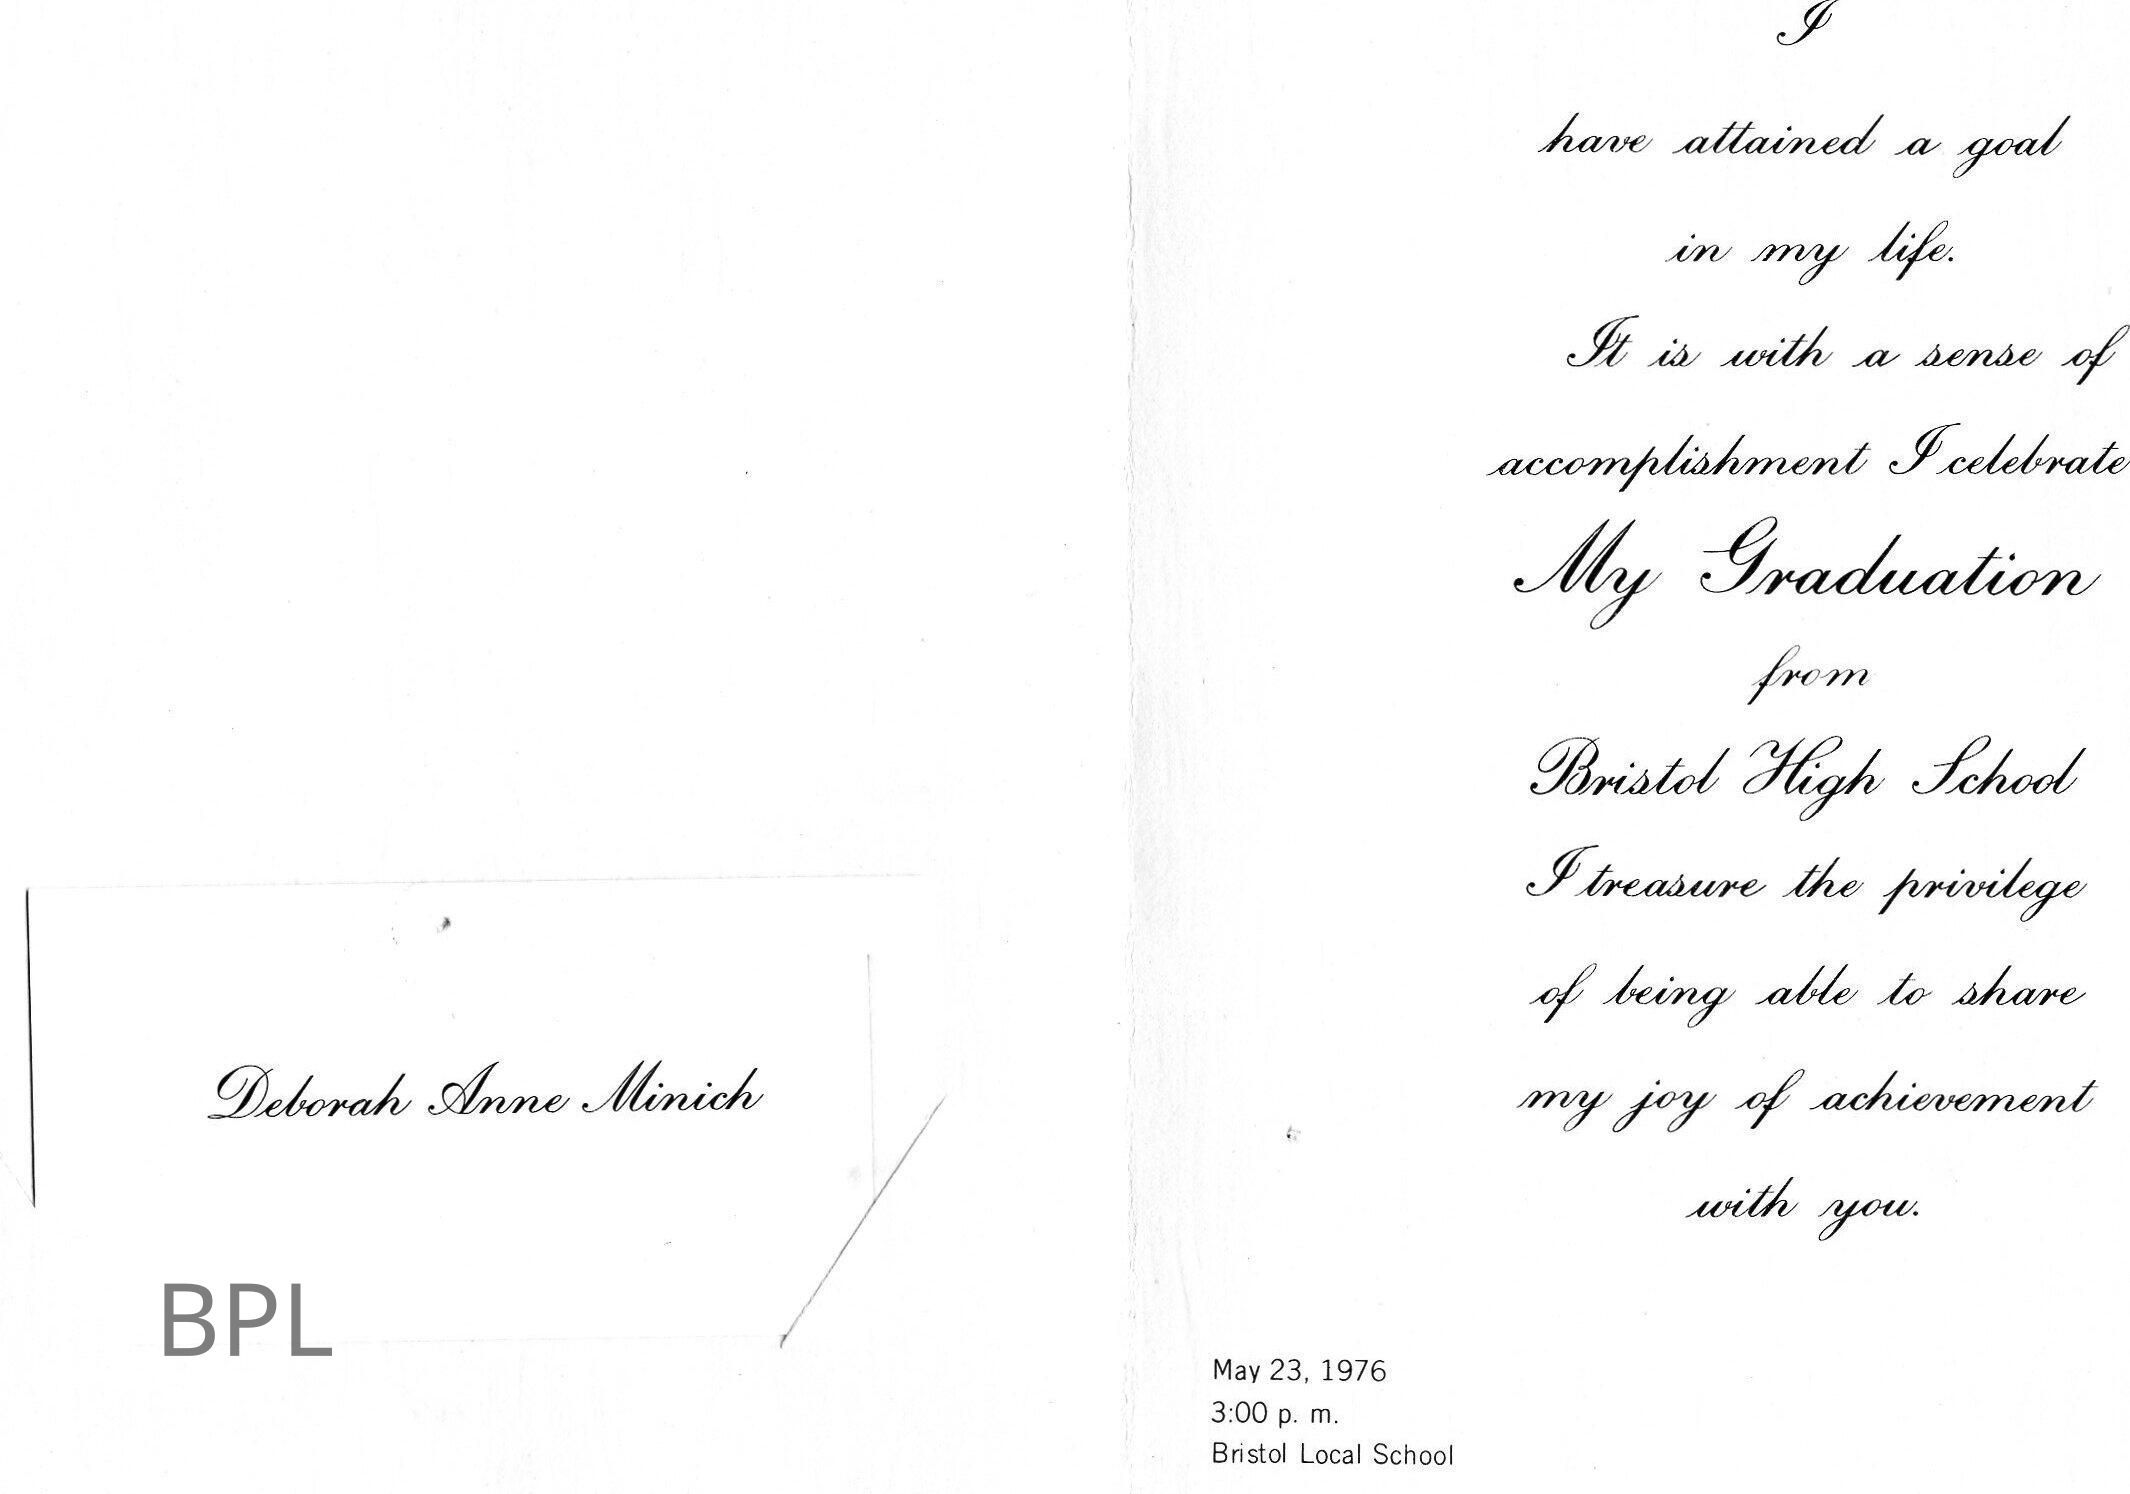 Deborah Anne Minich
BPL
I
have attained a goal
in my life.
It is with a sense of
accomplishment I celebrate
My Graduation
from
Bristol High School
I treasure the privilege
of being able to share
my joy of achievement
with you.
May 23, 1976
3:00 p. m.
Bristol Local School